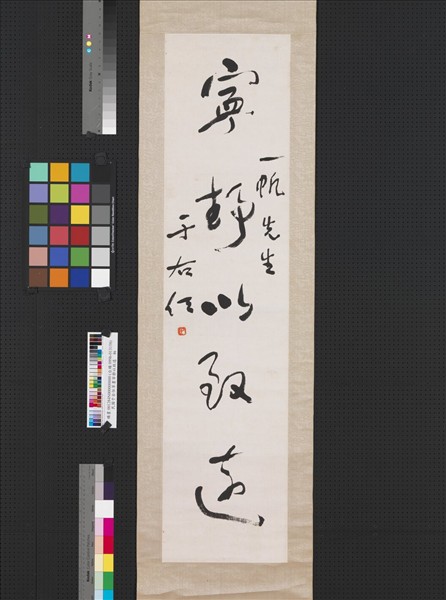 寧靜以致遠
一帆先生
于右任